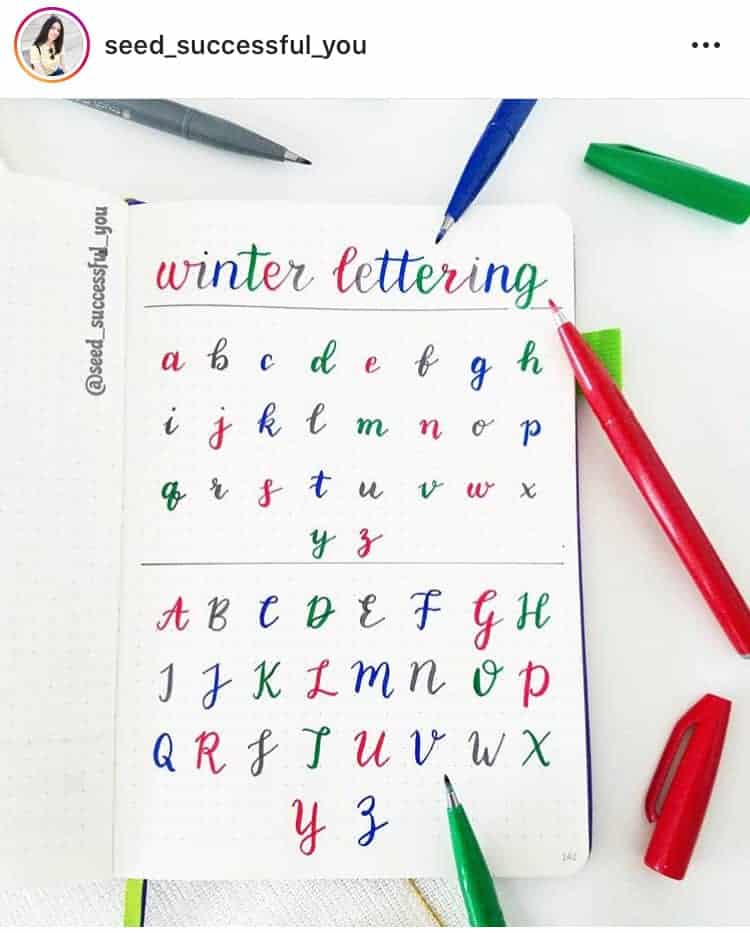 seed_successful_you
@seed_successful_you
winter lettering
a b c d e f g h
i j k l m n o p
q r s t u v w x
y z
A B C D E F G H
I J K L M N O P
Q R S T U V W X
Y Z